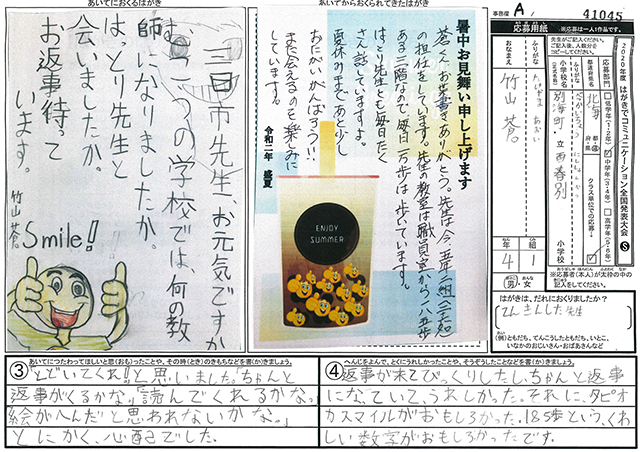 あいてにおくるはがき
三日市先生、お元気ですか
むこうの学校では、何の教
師になりましたか。
はっとり先生と
会いましたか。
お返事待って
います。
竹山 蒼
Smile!!
あいてからおくられてきたはがき
暑中お見舞い申し上げます
蒼くん、お葉書きありがとう。先生は今、
の担任をしています。先生の教室は職員室から
ある三階なので、毎日一万歩は歩いています。
はっとり先生とも毎日たく
さん話していますよ。
夏休みまであと少し
おたがいがんばろう!!
また会えるのを楽しみに
しています。
令和二年 盛夏
ENJOY
SUMMER
事務局 A
41045
応募用紙
※応募は一人1作品です。
2020年度 はがきでコミュニケーション全国発表大会 S
応募部門
低学年(1・2年)
中学年(3・4年)
高学年(5・6年)
クラス単位での応募
都道府県名
北海
小学校名
別海町立 西春別
小学校
ふりがな
たけやま あおい
おなまえ
竹山 蒼
年 4
組 1
男・女
※応募者(本人)が太枠の中の
記入をしてください。
はがきは、だれにおくりましたか?
てんきんした先生
(例)ともだち、てんこうしたともだち、いとこ、
いなかのおじいさん・おばあさんなど
③ あいてにつたわってほしいと思(おも)ったことや、その時(とき)のきもちなどを書(か)きましょう。
「とどいてくれ!!」と思いました。「ちゃんと
返事がくるかな。」「読んでくれるかな。」
「絵がへんだと思われないかな。」
とにかく、心配でした。
④ へんじをよんで、とくにうれしかったことや、そうぞうしたことなどを書(か)きましょう。
返事が来てびっくりしたし、ちゃんと返事
になっていて、うれしかった。それに、タピオ
カスマイルがおもしろかった。185歩という、くわ
しい数字がおもしろかったです。